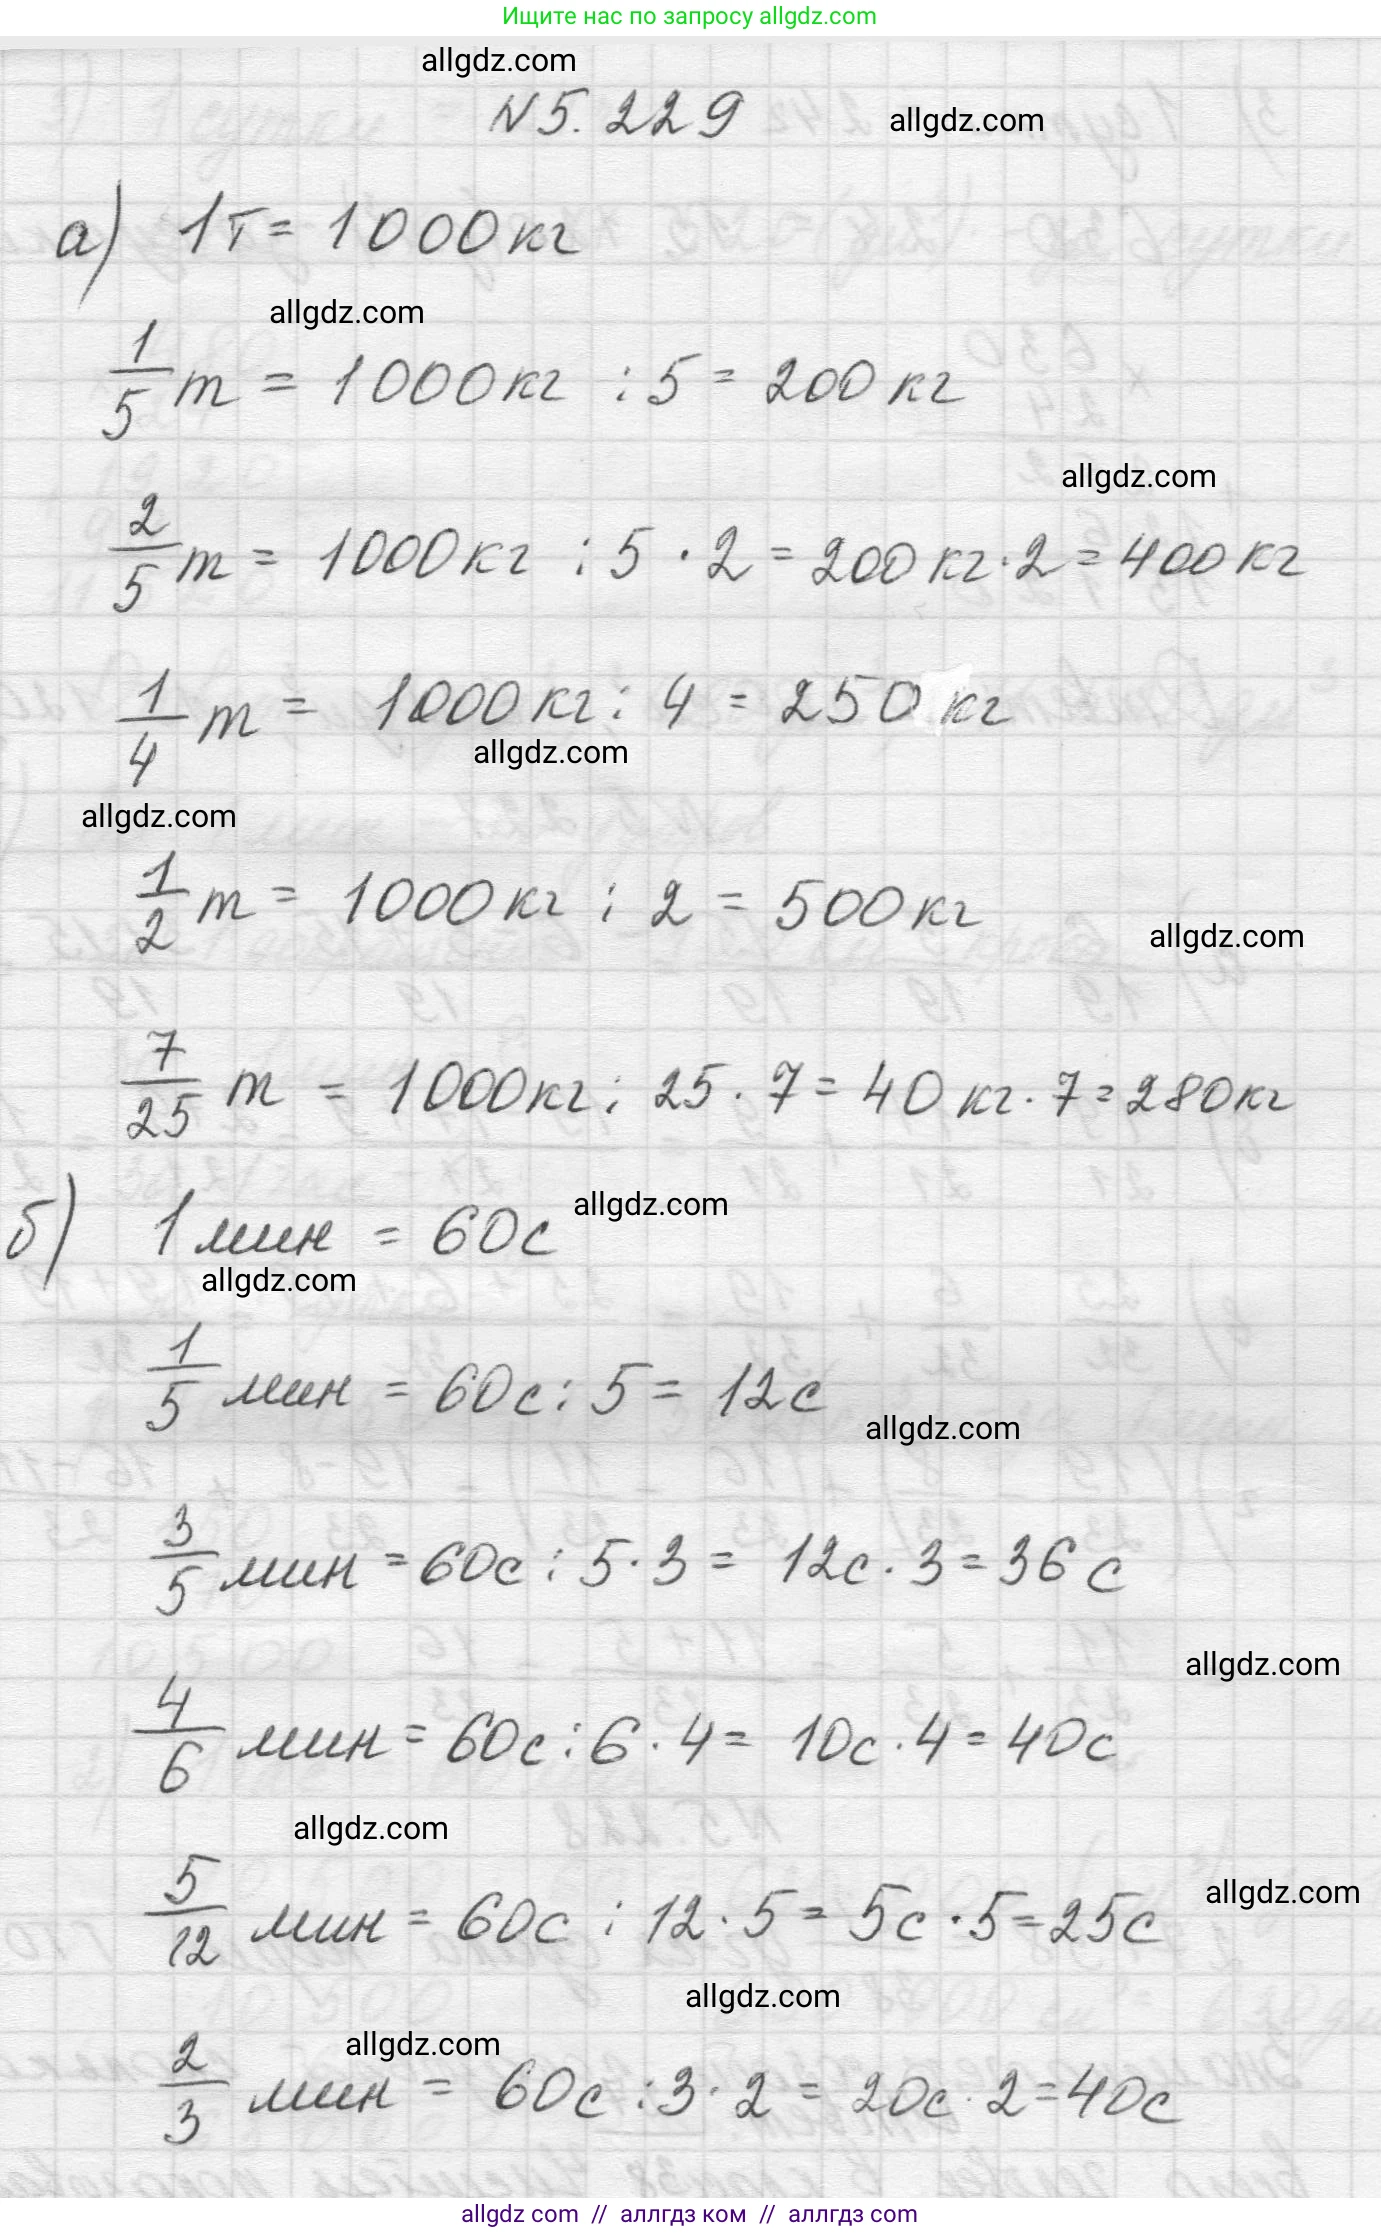 Ищите нас по запросу allgdz.com
allgdz.com
N 5.229
allgdz.com
а) 1т = 1000кг
allgdz.com
1/5 т = 1000кг : 5 = 200 кг
allgdz.com
2/5 т = 1000кг : 5 · 2 = 200 кг · 2 = 400 кг
1/4 т = 1000 кг : 4 = 250 кг
allgdz.com
allgdz.com
1/2 т = 1000 кг : 2 = 500 кг
allgdz.com
7/25 т = 1000кг : 25 · 7 = 40 кг · 7 = 280кг
allgdz.com
б) 1 мин = 60с
allgdz.com
1/5 мин = 60с : 5 = 12с
allgdz.com
3/5 мин = 60с : 5 · 3 = 12с · 3 = 36 с
allgdz.com
4/6 мин = 60с : 6 · 4 = 10с · 4 = 40с
allgdz.com
allgdz.com
5/12 мин = 60с : 12 · 5 = 5с · 5 = 25с
allgdz.com
allgdz.com
2/3 мин = 60с : 3 · 2 = 20с · 2 = 40с
allgdz.com // аллгдз ком // allgdz.com